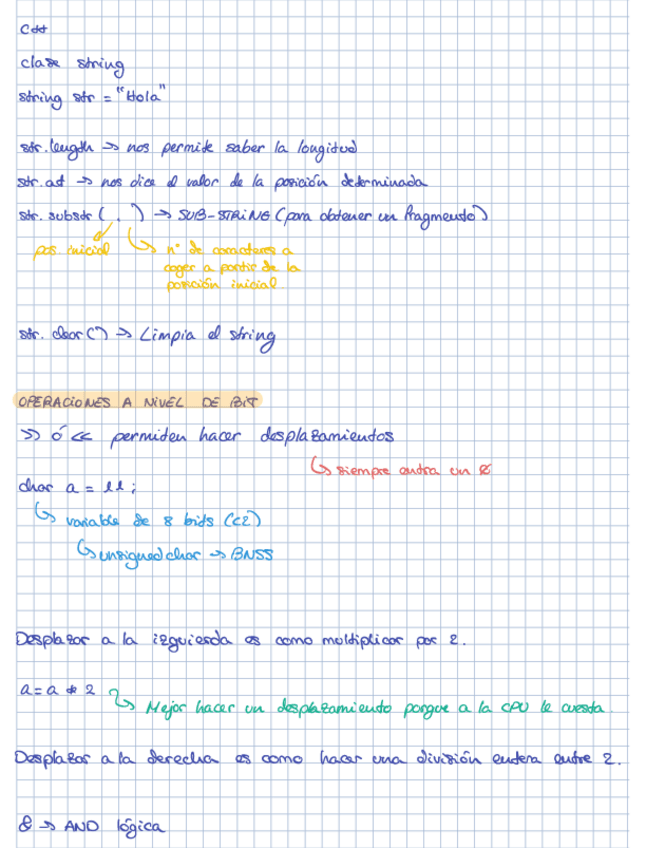 C++
clase string
string str = "Hola"
str.length → nos permite saber la longitud
str.at → nos dice el valor de la posición determinada
str.substr ( , ) → SUB-STRING (para obtener un fragmento)
pos. inicial
nº de caracteres a
coger a partir de la
posición inicial
str. clear() → Limpia el string
OPERACIONES A NIVEL DE BIT
>> ó << permiten hacer desplazamientos
siempre entra un 0
char a = 11;
variable de 8 bits (C2)
unsigned char → BNSS
Desplazar a la izquierda es como multiplicar por 2.
a = a * 2
Mejor hacer un desplazamiento porque a la CPU le cuesta
Desplazar a la derecha es como hacer una división entera entre 2.
& → AND lógica